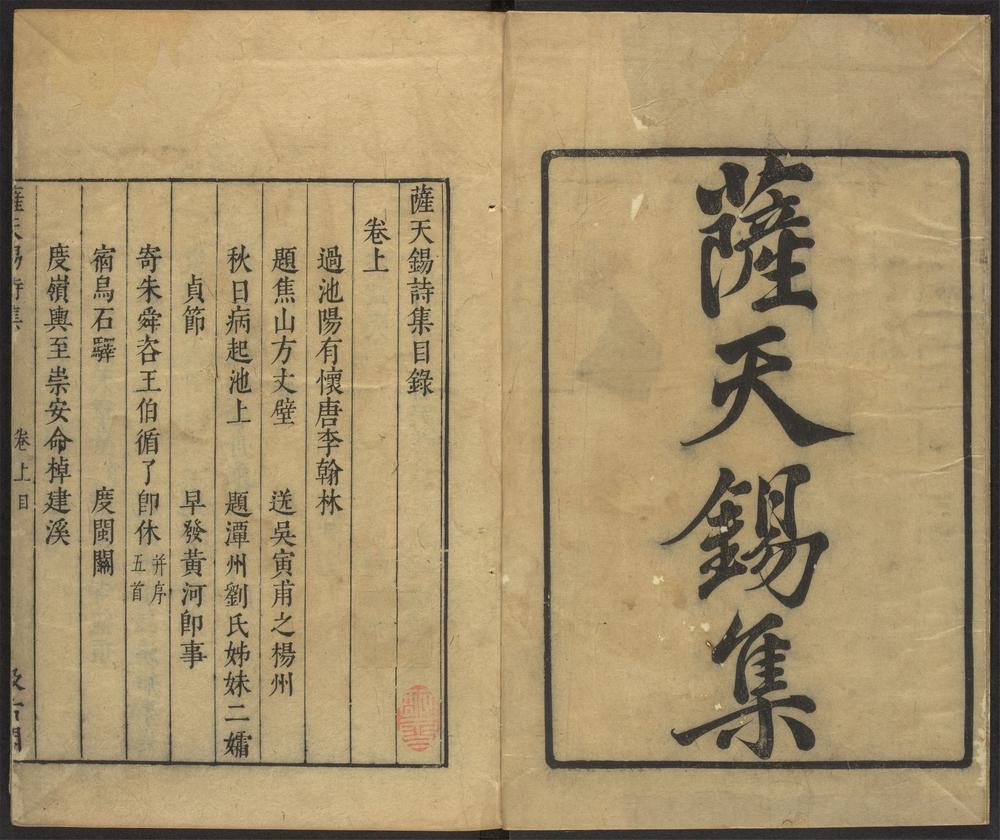 薩天錫集
薩天錫詩集目錄
卷上
過池陽有懷唐李翰林
題焦山方丈壁 送吳寅甫之楊州
秋日病起池上 題潭州劉氏姊妹二孀
貞節 早發黃河卽事
寄朱舜咨王伯循了卽休 并序五首
宿烏石驛 度閩關
度嶺輿至崇安命棹建溪
薩天錫詩集 卷上目 汲古閣